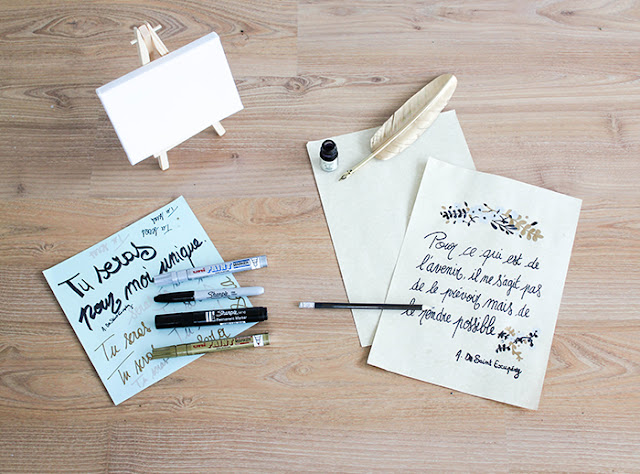 Tu seras
Tu seras
Tu seras
pour moi unique
Tu seras
Tu seras
uni PAINT
Sharpie
Sharpie
Permanent Marker
uni PAINT
Pour ce qui est de
l'avenir, il ne s'agit pas
de le prévoir, mais de
le rendre possible
A. De Saint Exupéry